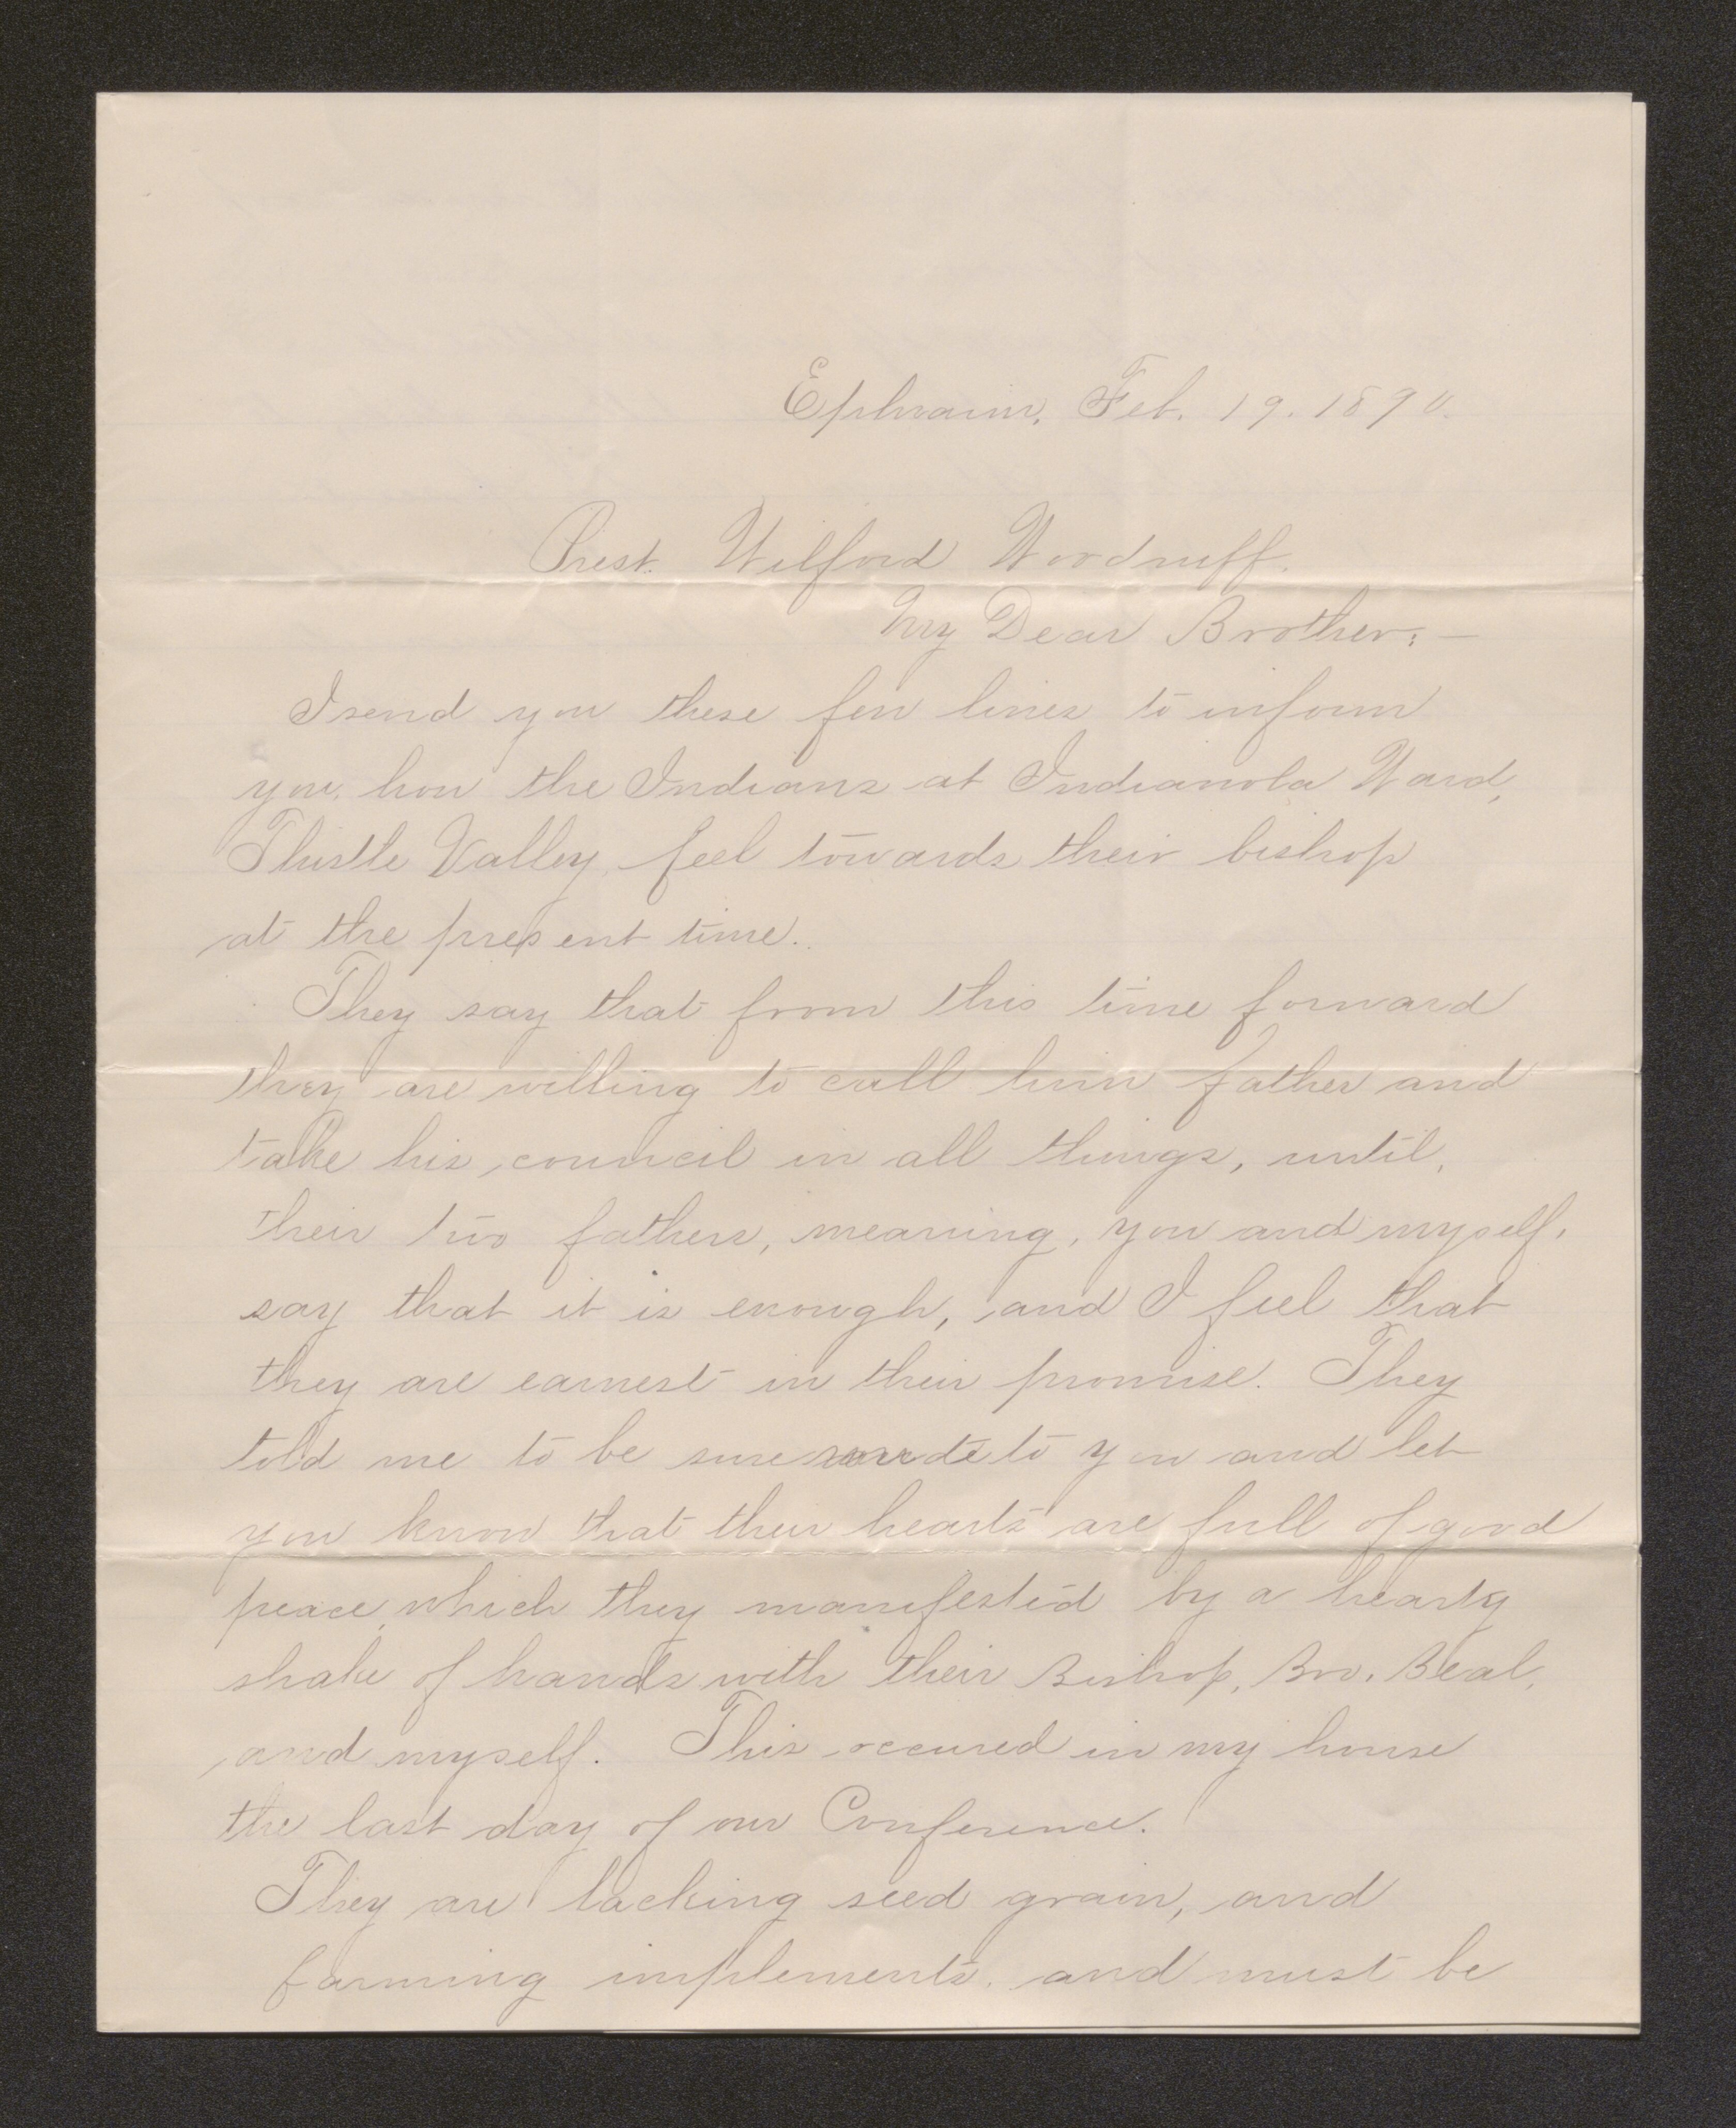 Ephraim, Feb. 19. 1890.
Prest. Wilford Woodruff.
My Dear Brother:—
I send you these few lines to inform
you, how the Indians at Indianola Ward,
Thistle Valley, feel towards their bishop
at the present time.
They say that from this time forward
they are willing to call him father and
take his council in all things, until,
their two fathers, meaning, you and myself,
say that it is enough, and I feel that
they are earnest in their promise. They
told me to be sure to you and let
you know that their hearts are full of good
peace, which they manifested by a hearty
shake of hands with their Bishop, Bro. Beal,
and myself. This occured in my house
the last day of our Conference.
They are lacking seed grain, and
farming implements. and must be